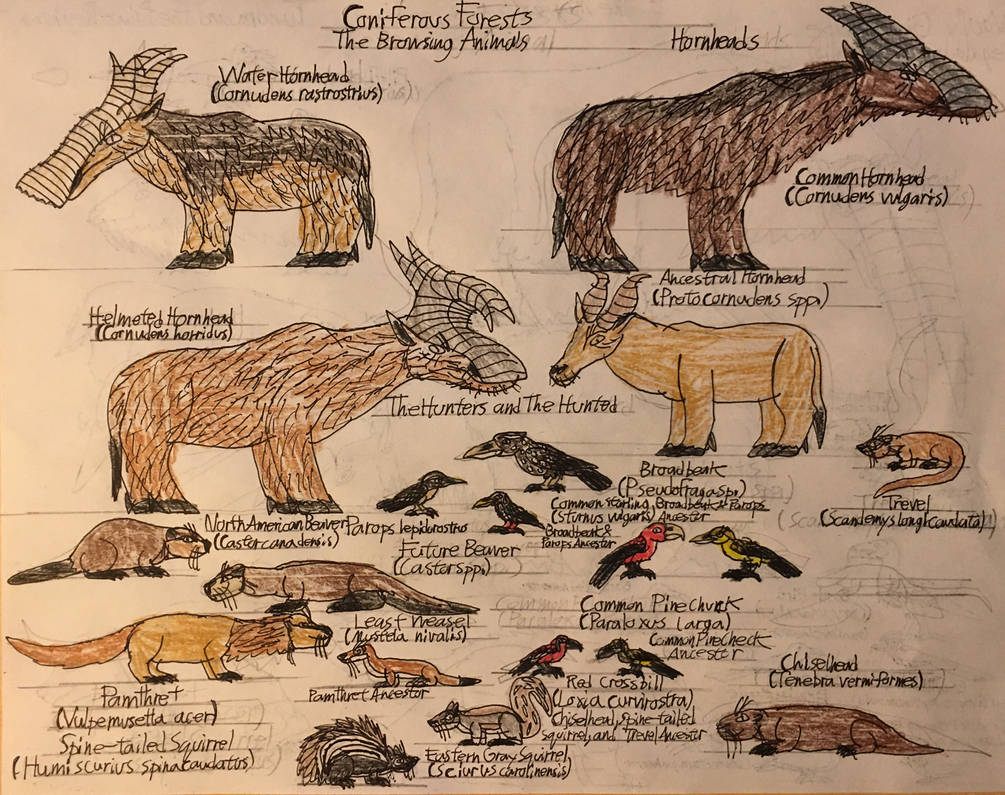 Coniferous Forests
The Browsing Animals
Hornheads
Water Hornhead
(Cornudens rastrostrius)
Common Hornhead
(Cornudens vulgaris)
Helmeted Hornhead
(Cornudens horridus)
Ancestral Hornhead
(Protocornudens spp.)
The Hunters and The Hunted
Broadbeak
(Pseudofraga sp.)
Common starling, Broadbeak & Parops
(Sturnus vulgaris) Ancestor
Broadbeak &
Parops Ancestor
Trevel
(Scandemys longicaudata)
North American Beaver
(Castor canadensis)
Parops lepidorostrus
Future Beaver
(Castor spp.)
Common Pine Chuck
(Paraloxus larga)
Common Pine Check
Ancestor
Least Weasel
(Mustela nivalis)
Pamthret
(Vulpemustella acer)
Pamthret Ancestor
Red Crossbill
(Loxia curvirostra)
Chiselhead, Spine-tailed
Squirrel, and Trevel Ancestor
Chiselhead
(Tenebra vermiformes)
Spine-tailed Squirrel
(Humiscurius spinacaudatus)
Eastern Gray Squirrel
(Sciurus carolinensis)